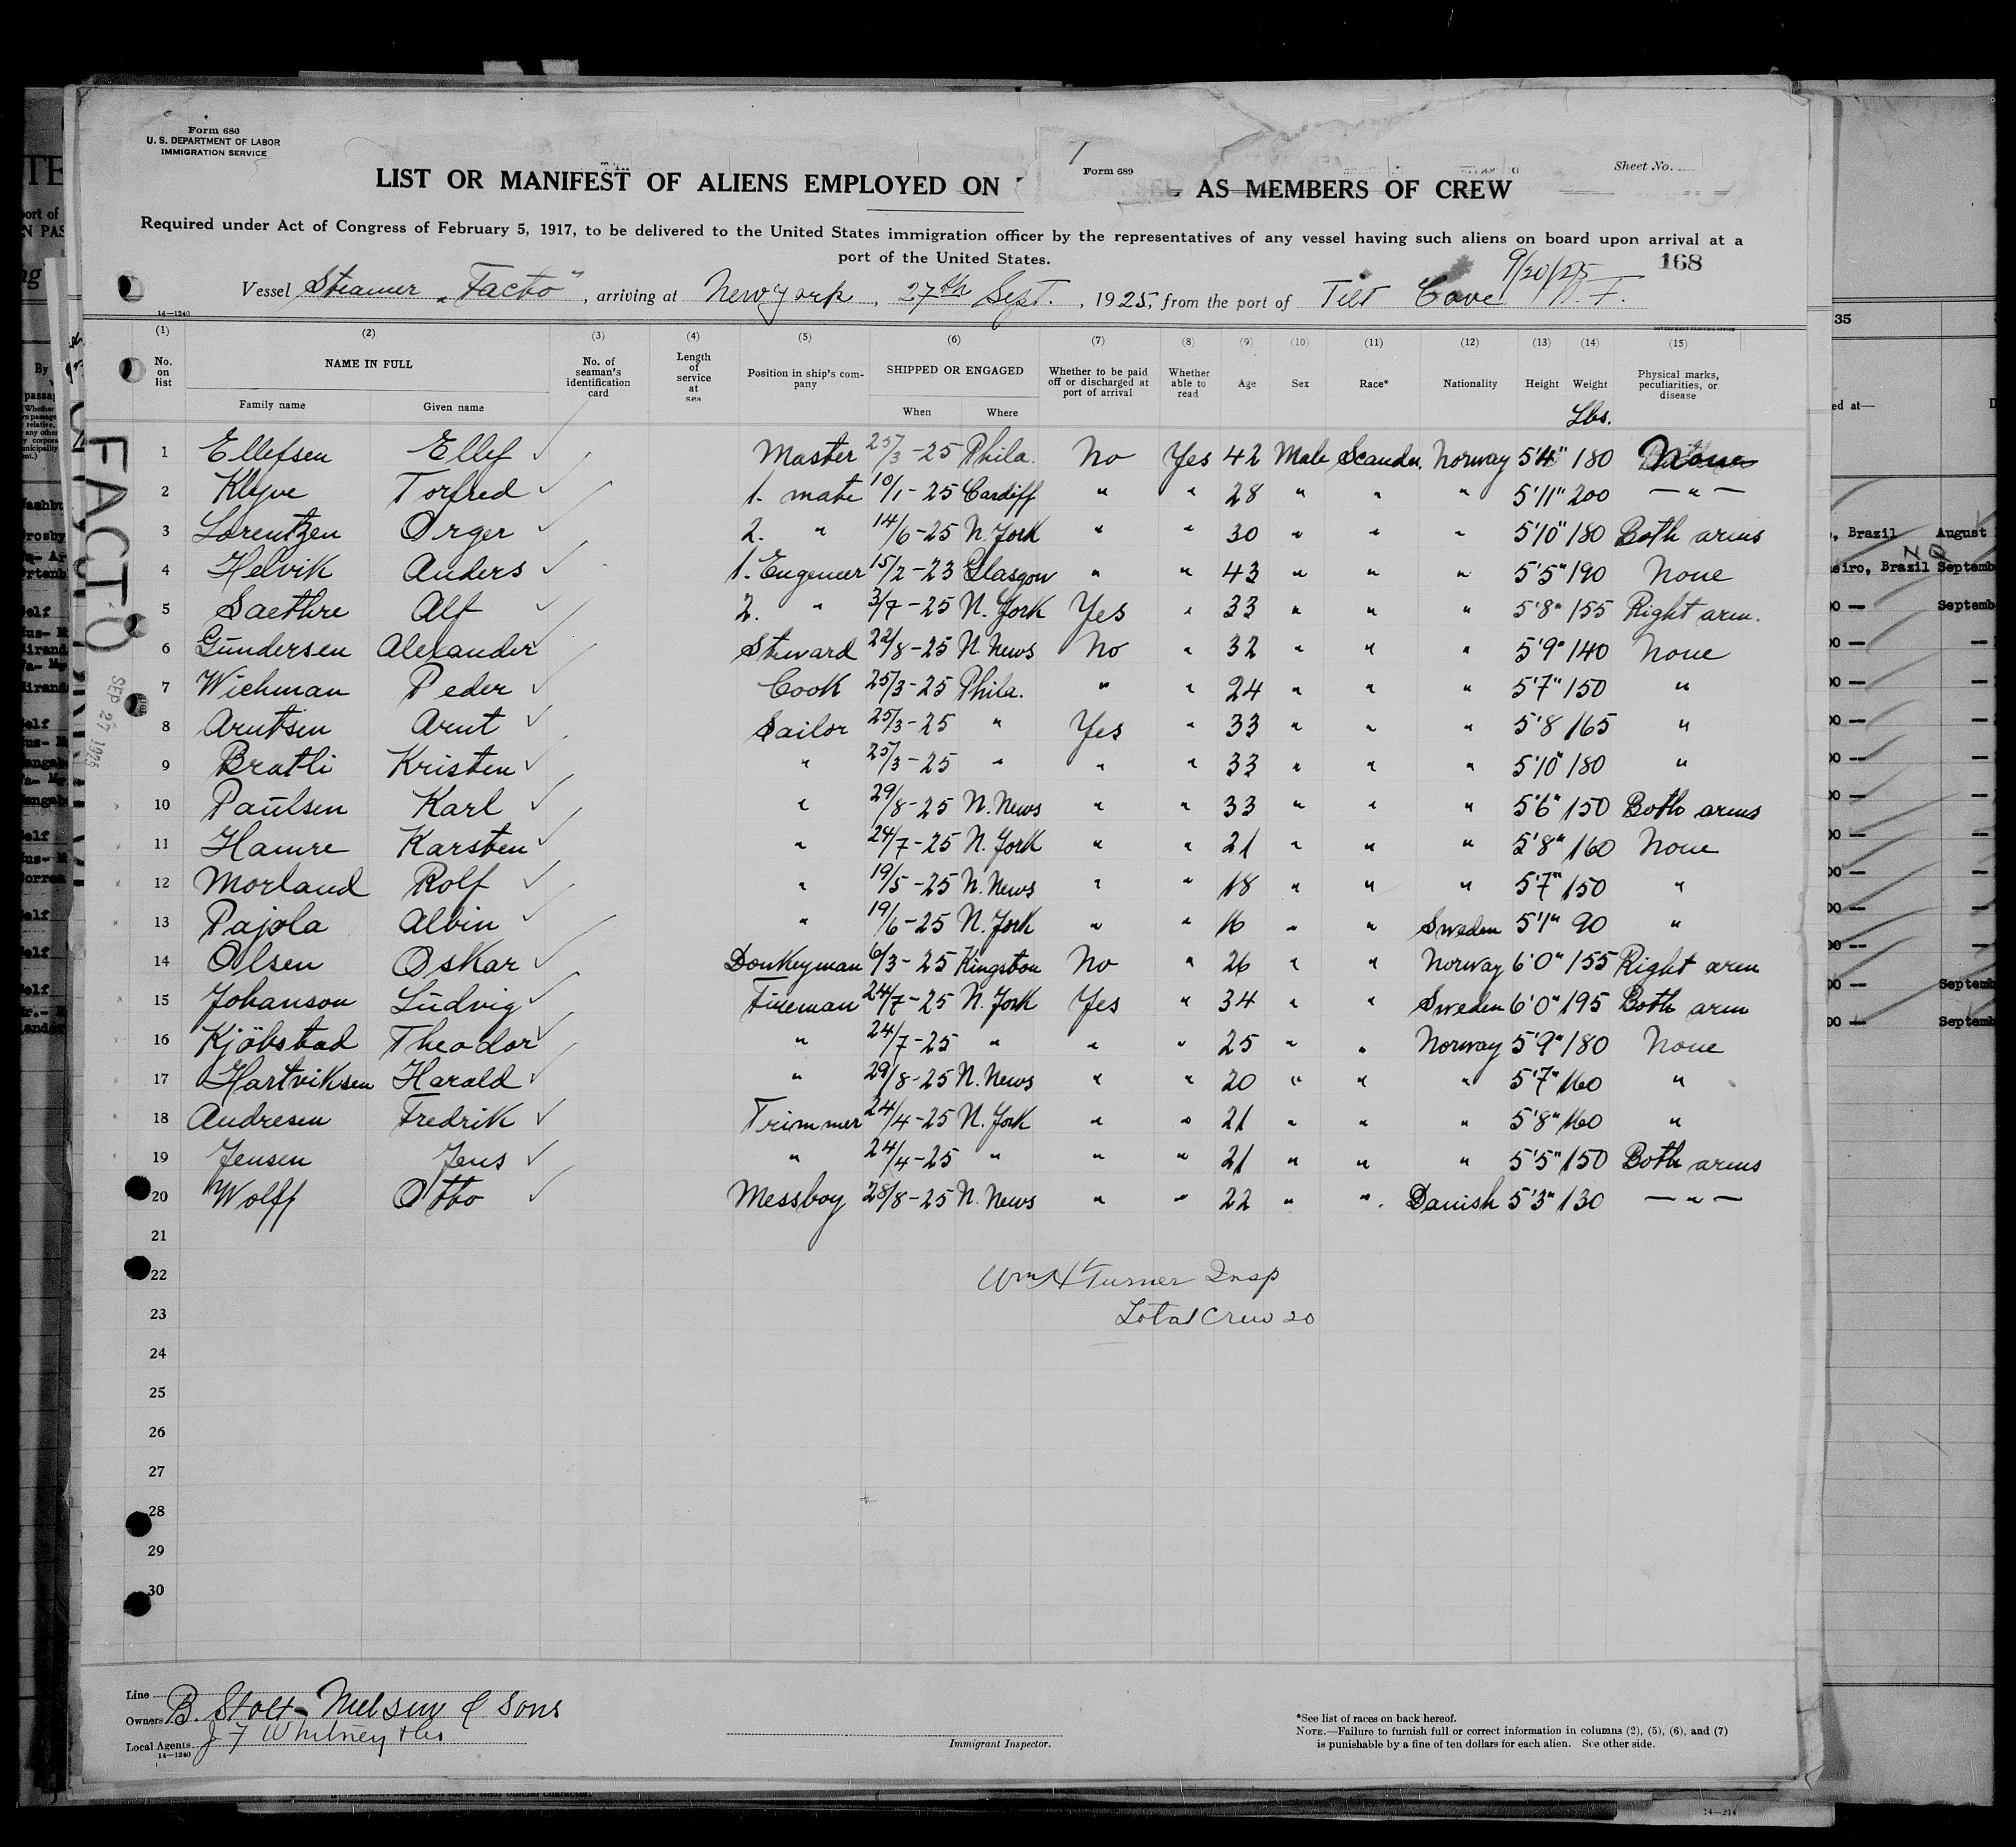 Form 680
U. S. DEPARTMENT OF LABOR
IMMIGRATION SERVICE
Form 689
Sheet No.
LIST OR MANIFEST OF ALIENS EMPLOYED ON AS MEMBERS OF CREW
Required under Act of Congress of February 5, 1917, to be delivered to the United States immigration officer by the representatives of any vessel having such aliens on board upon arrival at a
port of the United States.
9/20/25
168
Vessel Steamer "Facto", arriving at New york, 27th Sept., 1925, from the port of Tilt Cove N. F.
14—1240
(1) (2) (3) (4) (5) (6) (7) (8) (9) (10) (11) (12) (13) (14) (15)
No. on list NAME IN FULL Family name Given name No. of seaman's identification card Length of service at sea Position in ship's company SHIPPED OR ENGAGED When Where Whether to be paid off or discharged at port of arrival Whether able to read Age Sex Race* Nationality Height Weight Physical marks, peculiarities, or disease
Lbs.
FACTO
SEP 27 1925
1 Ellefsen Ellef Master 25/3-25 Phila. No Yes 42 Male Scandn. Norway 5'4" 180 None
2 Klyve Torfred 1. mate 10/1-25 Cardiff " " 28 " " " 5'11" 200 — " —
3 Lorentzen Orger 2. " 14/6-25 N. York " " 30 " " " 5'10" 180 Both arms
4 Helvik Anders 1. Engeneer 15/2-23 Glasgow " " 43 " " " 5'5" 190 None
5 Saethre Alf 2. " 3/7-25 N. York Yes " 33 " " " 5'8" 155 Right arm.
6 Gundersen Alexander Steward 22/8-25 N News No " 32 " " " 5'9" 140 None
7 Wichman Peder Cook 25/3-25 Phila. " " 24 " " " 5'7" 150 "
8 Arntsen Arnt Sailor 25/3-25 " Yes " 33 " " " 5'8 165 "
9 Bratli Kristen " 25/3-25 " " " 33 " " " 5'10" 180 "
10 Paulsen Karl " 29/8-25 N. News " " 33 " " " 5'6" 150 Both arms
11 Hamre Karsten " 24/7-25 N. York " " 21 " " " 5'8" 160 None
12 Morland Rolf " 19/5-25 N. News " " 18 " " " 5'7" 150 "
13 Pajola Albin " 19/6-25 N. York " " 16 " " Sweden 5'1" 90 "
14 Olsen Oskar Donkeyman 6/3-25 Kingston No " 26 " " Norway 6'0" 155 Right arm
15 Johanson Ludvig Fireman 24/7-25 N. York Yes " 34 " " Sweden 6'0" 195 Both arm
16 Kjöbstad Theodor " 24/7-25 " " " 25 " " Norway 5'9" 180 None
17 Hartviksen Harald " 29/8-25 N. News " " 20 " " " 5'7" 160 "
18 Andresen Fredrik Trimmer 24/4-25 N. York " " 21 " " " 5'8" 160 "
19 Jensen Jens " 24/4-25 " " " 21 " " " 5'5" 150 Both arms
20 Wolff Otto Messboy 28/8-25 N. News " " 22 " " Danish 5'3" 130 — " —
21
22
Wm H Turner Insp
23
Total Crew 20
24
25
26
27
28
29
30
Line
Owners B. Stolt-Nielsen & Sons
Local Agents J F Whitney & Co
14—1240
Immigrant Inspector.
*See list of races on back hereof.
NOTE.—Failure to furnish full or correct information in columns (2), (5), (6), and (7)
is punishable by a fine of ten dollars for each alien. See other side.
14—214
35
ed at—
, Brazil August
eiro, Brazil Septemb